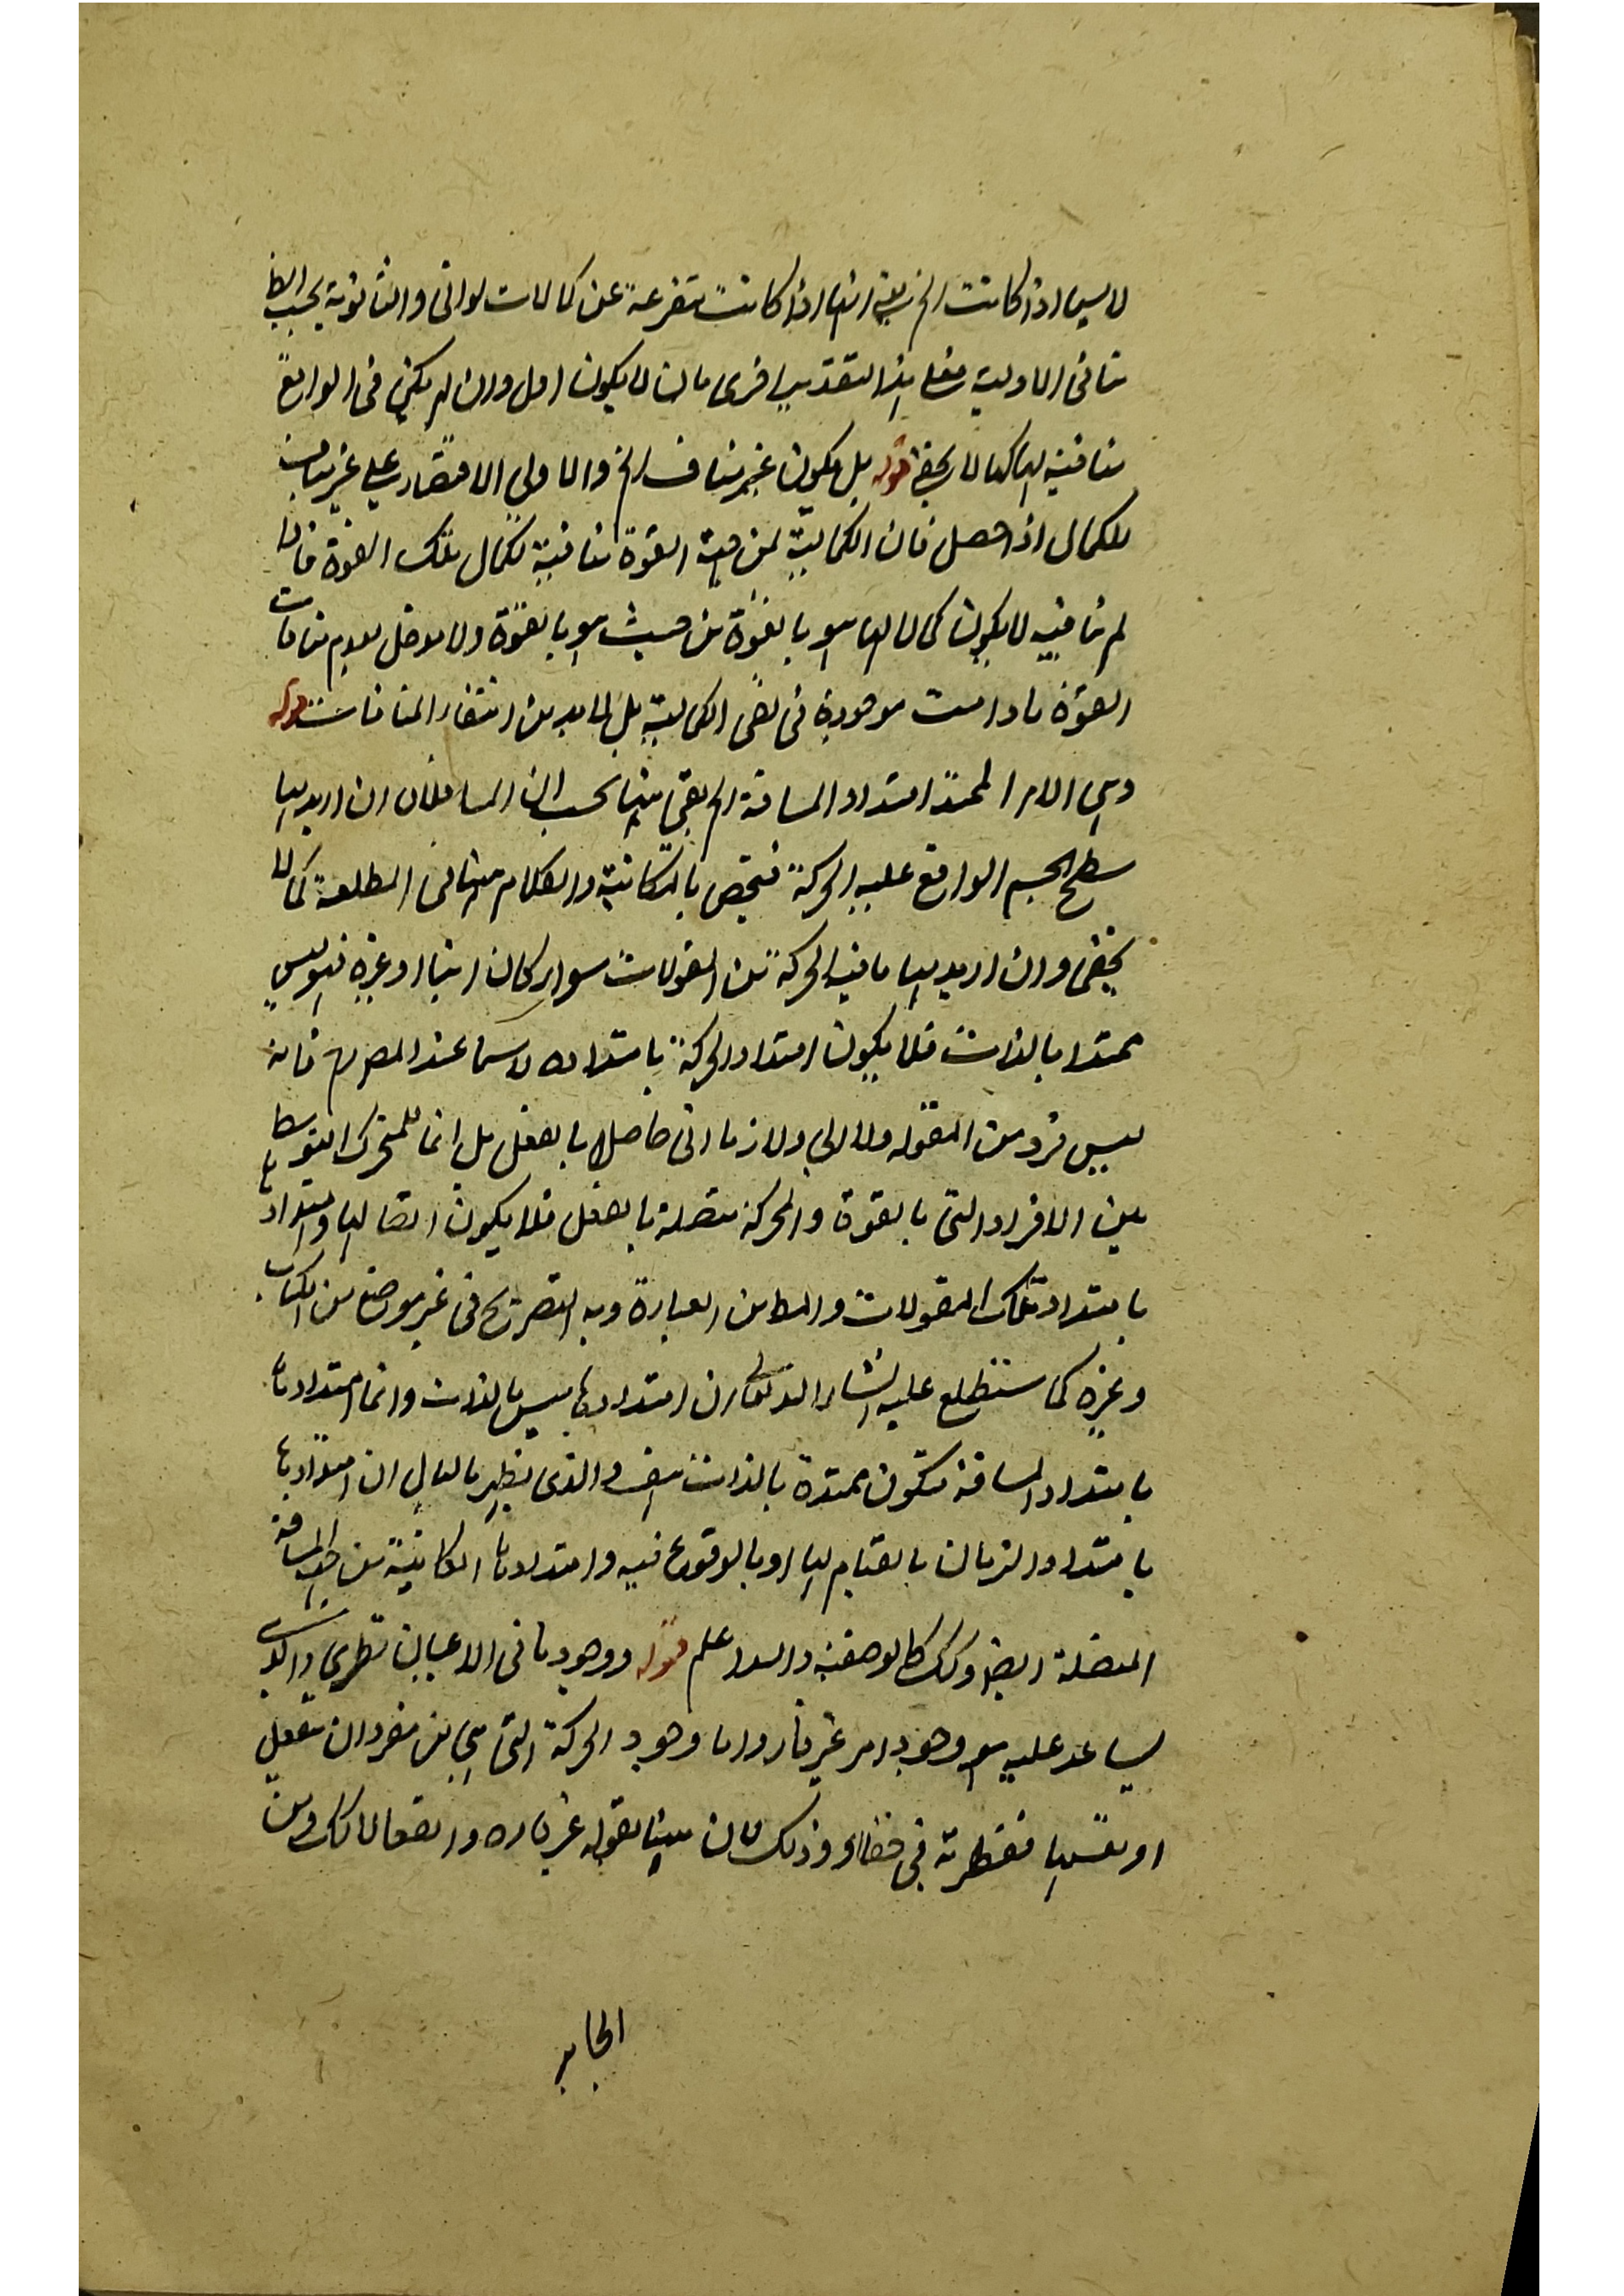 لا سيما اذا كانت الخ يعني انها اذا كانت متفرعة عن كمالات ثواني والثانوية بحسب الظا
تنافي الاولية فعلى هذا التقدير احرى بان لا يكون اول وان لم يكن في الواقع
منافية لها كما لا يخفى قوله بل يكون غير مناف الخ والاولى الاقتصار على غير مناف
للكمال اذا حصل فان الكمالية من جهة القوة منافية لكمال تلك القوة فما
لم تنافيه لا يكون كمالا لما هو بالقوة من حيث هو بالقوة ولا مدخل لعدم منافات
القوة ما دامت موجودة في نفي الكمالية بل لا بد من انتفاء المنافات قوله
وهي الامر الممتد امتداد المسافة الخ بقي هنا بحسب ان المسافة ان اريد بها
سطح الجسم الواقع عليه الحركة فيختص بالمكانية والكلام هنا في المطلقة كما لا
يخفى وان اريد بها ما فيه الحركة من المقولات سواء كان اينا او غيره فهو ليس
ممتدا بالذات فلا يكون امتداد الحركة بامتداده لا سيما عند المصرم فانه
ليس فرد من المقولة ولا اني ولا زماني حاصلا بالفعل بل انما للمتحرك التوسط
بين الافراد التي بالقوة والحركة متصلة بالفعل فلا يكون اتصالها وامتدادها
بامتداد تلك المقولات والظ من العبارة وبه التصريح في غير موضع من الكتاب
وغيره كما ستطلع عليه انشاء الله تعالى ان امتدادها ليس بالذات وانما امتدادها
بامتداد المسافة فتكون ممتدة بالذات ايضا والذي يظهر بالبال ان امتدادها
بامتداد الزمان بالقيام لها او بالوقوع فيه وامتدادها المكانية من جهة المسافة
المتصلة ايضا وكك كالوضعية والله اعلم قوله ووجودها في الاعيان نظري والذي
يساعد عليه هو وجود امر غير قار واما وجود الحركة التي هي من مفرد ان ينفعل
او نفسها ففطريته في خفاء وذلك لان هيئا بقوله غير قاره واتصالا كك ومن
الجابر